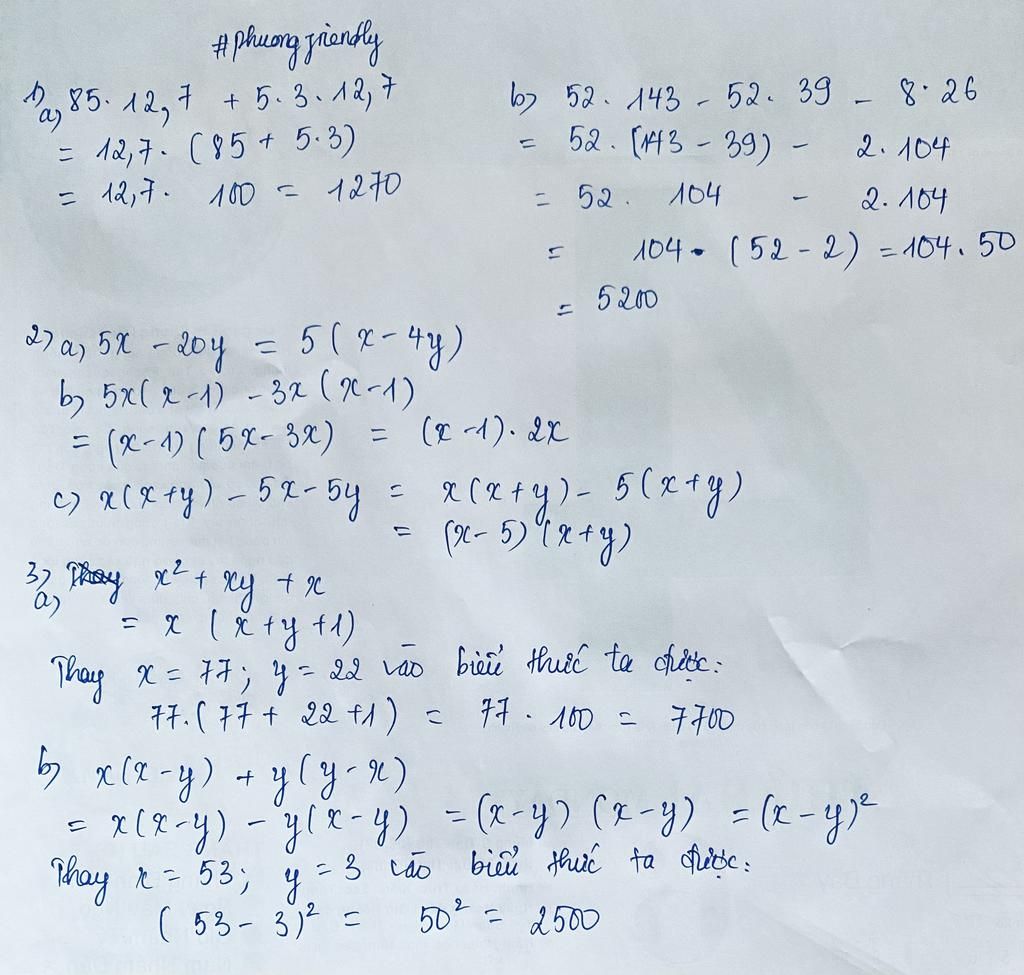 #phuongfriendly
1) a) 85 · 12,7 + 5 · 3 · 12,7
= 12,7 · (85 + 5·3)
= 12,7 · 100 = 1270
b) 52 · 143 - 52 · 39 - 8 · 26
= 52 · (143 - 39) - 2 · 104
= 52 · 104 - 2 · 104
= 104 · (52 - 2) = 104 · 50
= 5200
2) a) 5x - 20y = 5(x - 4y)
b) 5x(x - 1) - 3x(x - 1)
= (x - 1)(5x - 3x) = (x - 1) · 2x
c) x(x + y) - 5x - 5y = x(x + y) - 5(x + y)
= (x - 5)(x + y)
3) a) x² + xy + x
= x (x + y + 1)
Thay x = 77; y = 22 vào biểu thức ta được:
77 · (77 + 22 + 1) = 77 · 100 = 7700
b) x(x - y) + y(y - x)
= x(x - y) - y(x - y) = (x - y)(x - y) = (x - y)²
Thay x = 53; y = 3 vào biểu thức ta được:
(53 - 3)² = 50² = 2500